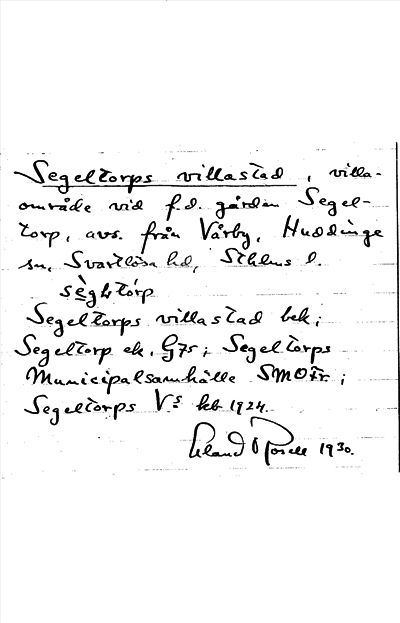 Segeltorps villastad, villa-
område vid f.d. gården Segel-
torp, avs. från Vårby, Huddinge
sn, Svartlösa hd, Sthlms l.
sègltórp
Segeltorps villastad bek;
Segeltorp ek. G7r; Segeltorps
Municipalsamhälle SMOFr;
Segeltorps Vs kb 1924.
Erland Rosell 1930.